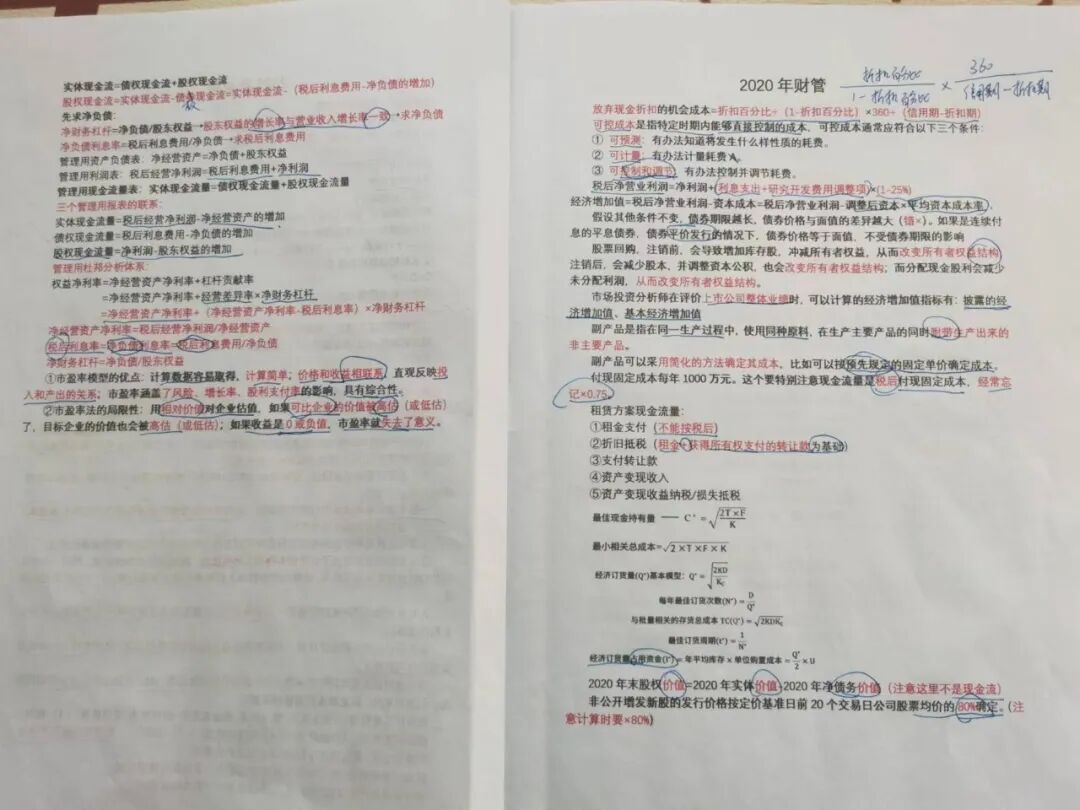 实体现金流=债权现金流+股权现金流
股权现金流=实体现金流-债务现金流=实体现金流-（税后利息费用-净负债的增加）
权
先求净负债：
净财务杠杆=净负债/股东权益→股东权益的增长率与营业收入增长率一致→求净负债
净负债利息率=税后利息费用/净负债→求税后利息费用
管理用资产负债表：净经营资产=净负债+股东权益
管理用利润表：税后经营净利润=税后利息费用+净利润
管理用现金流量表：实体现金流量=债权现金流量+股权现金流量
三个管理用报表的联系：
实体现金流量=税后经营净利润-净经营资产的增加
债权现金流量=税后利息费用-净负债的增加
股权现金流量=净利润-股东权益的增加
管理用杜邦分析体系：
权益净利率=净经营资产净利率+杠杆贡献率
=净经营资产净利率+经营差异率×净财务杠杆
=净经营资产净利率+（净经营资产净利率-税后利息率）×净财务杠杆
净经营资产净利率=税后经营净利润/净经营资产
税后利息率=净负债利息率=税后利息费用/净负债
净财务杠杆=净负债/股东权益
①市盈率模型的优点：计算数据容易取得，计算简单；价格和收益相联系，直观反映投
入和产出的关系；市盈率涵盖了风险、增长率、股利支付率的影响，具有综合性。
②市盈率法的局限性：用相对价值对企业估值，如果可比企业的价值被高估（或低估）
了，目标企业的价值也会被高估（或低估）；如果收益是0或负值，市盈率就失去了意义。
2020 年财管
折扣百分比/1-折扣百分比 × 360/信用期-折扣期
放弃现金折扣的机会成本=折扣百分比÷（1-折扣百分比）×360÷（信用期-折扣期）
可控成本是指特定时期内能够直接控制的成本，可控成本通常应符合以下三个条件：
① 可预测：有办法知道将发生什么样性质的耗费。
② 可计量：有办法计量耗费。
③ 可控制和调节：有办法控制并调节耗费。
税后净营业利润=净利润+（利息支出+研究开发费用调整项）×(1-25%)
经济增加值=税后净营业利润-资本成本=税后净营业利润-调整后资本×平均资本成本率
假设其他条件不变，债券期限越长，债券价格与面值的差异越大（错×）。如果是连续付
息的平息债券，债券平价发行的情况下，债券价格等于面值，不受债券期限的影响
股票回购，注销前，会导致增加库存股，冲减所有者权益，从而改变所有者权益结构；
注销后，会减少股本，并调整资本公积，也会改变所有者权益结构；而分配现金股利会减少
未分配利润，从而改变所有者权益结构。
市场投资分析师在评价上市公司整体业绩时，可以计算的经济增加值指标有：披露的经
济增加值、基本经济增加值
副产品是指在同一生产过程中，使用同种原料，在生产主要产品的同时附带生产出来的
非主要产品。
副产品可以采用简化的方法确定其成本，比如可以按预先规定的固定单价确定成本。
付现固定成本每年1000万元。这个要特别注意现金流量是税后付现固定成本，经常忘
记×0.75。
租赁方案现金流量：
①租金支付（不能按税后）
②折旧抵税（租金+获得所有权支付的转让款为基础）
③支付转让款
④资产变现收入
⑤资产变现收益纳税/损失抵税
最佳现金持有量 —— C*=√(2T×F/K)
最小相关总成本=√(2×T×F×K)
经济订货量(Q*)基本模型：Q*=√(2KD/Kc)
每年最佳订货次数(N*)=D/Q*
与批量相关的存货总成本 TC(Q*)=√(2KDKc)
最佳订货周期(t*)=1/N*
经济订货量占用资金(I*)=年平均库存×单位购置成本=Q*/2×U
2020年末股权价值=2020年实体价值-2020年净债务价值（注意这里不是现金流）
非公开增发新股的发行价格按定价基准日前20个交易日公司股票均价的80%确定。（注
意计算时要×80%）